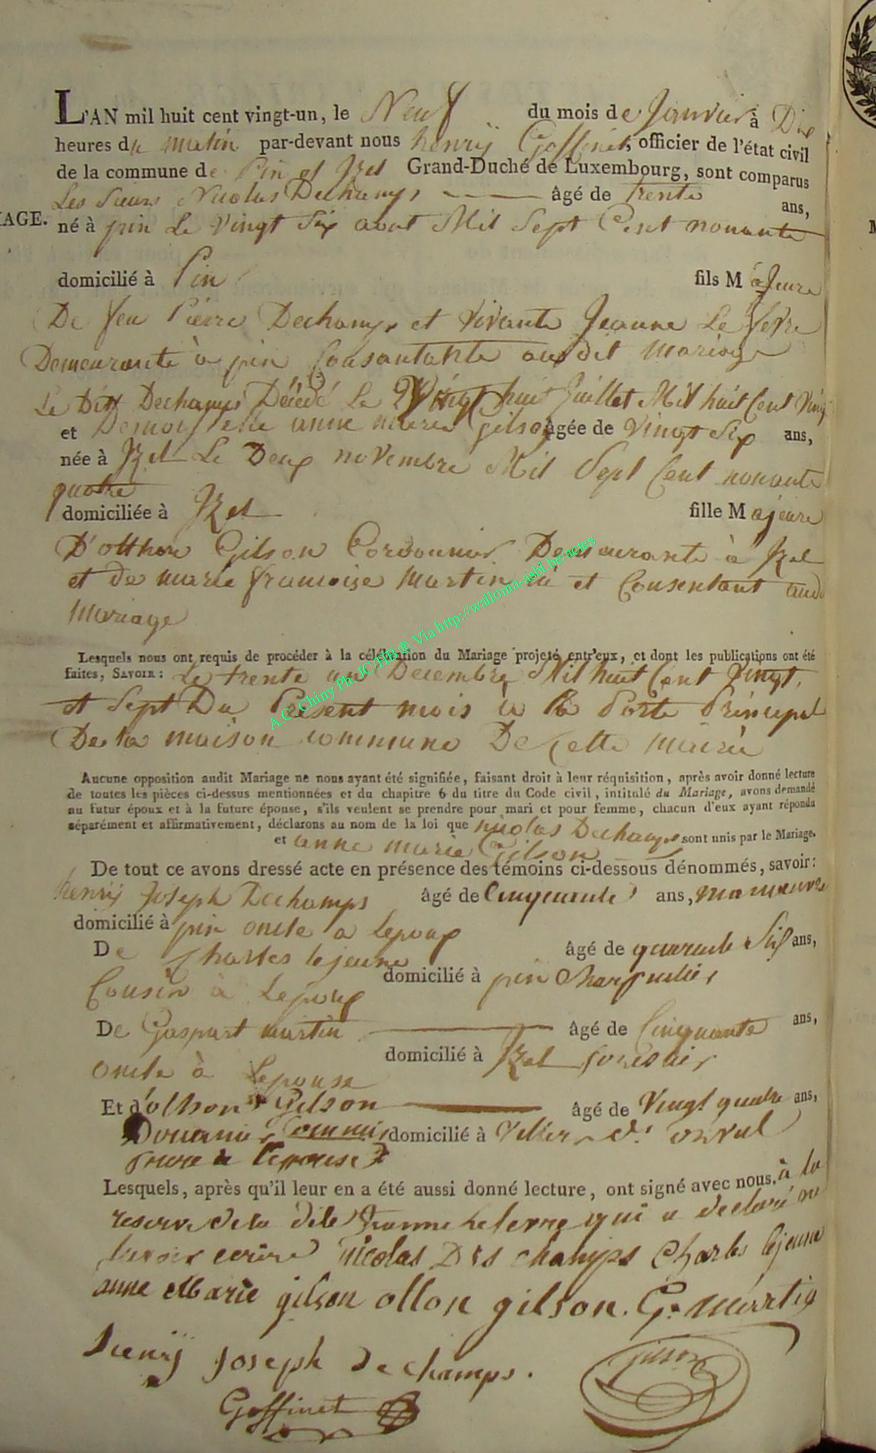 L'AN mil huit cent vingt-un, le Neuf du mois de Janvier à Dix
heures du matin par-devant nous henry Goffinet, officier de l'état civil
de la commune de Pin et Izel Grand-Duché de Luxembourg, sont comparus
Les Sieurs Nicolas Dechamps âgé de trente ans,
IAGE. né à pin Le Vingt Six aout Mil Sept Cent nonante
domicilié à Pin fils Majeure
De feu Pierre Dechamps et vivante Jeanne Le
Demeurante à pin Consantante audit mariage
Le Dit Dechamps Décédé Le Vingt huit Juillet Mil huit Cent Ving
et Demoiselle anne marie gilson âgée de Vingt Six ans,
née à Izel Le Deux novembre Mil Sept Cent nonante
quatre
domiciliée à Izel fille Majeure
D'otthon Gilson Cordonnier Demeurante à Izel
et de marie francoise Martin et Consentant aud
Mariage
Lesquels nous ont requis de procéder à la célébration du Mariage projeté entr'eux, et dont les publications ont été
faites, SAVOIR: Le trente un Decembre Mil huit Cent Vingt,
et Sept Du Present mois à la Porte Principal
De la maison commune De cette Mairie
A.C. Chiny Via http://wallonia-asbl.be-notes
Aucune opposition audit Mariage ne nous ayant été signifiée, faisant droit à leur réquisition, après avoir donné lecture
de toutes les pièces ci-dessus mentionnées et du chapitre 6 du titre du Code civil, intitulé du Mariage, avons demandé
au futur époux et à la future épouse, s'ils veulent se prendre pour mari et pour femme, chacun d'eux ayant répondu
séparément et affirmativement, déclarons au nom de la loi que Nicolas Dechamps
et anne Marie Gilson sont unis par le Mariage.
De tout ce avons dressé acte en présence des témoins ci-dessous dénommés, savoir:
henry Joseph Dechamps âgé de Cinquante ans, manœuvre
domicilié à pin oncle a Lepoux
De Charles lejeune âgé de quarante Six ans,
domicilié à pin
Cousin à Lepoux
De Gaspart martin âgé de Cinquante ans,
domicilié à Izel
oncle à Lepouse
Et d'othon Gilson âgé de Vingt quatre ans,
domicilié à Villers
frere de l'epouse
Lesquels, après qu'il leur en a été aussi donné lecture, ont signé avec nous. à la
reserve de la dite Jeanne qui a declaré ne
Savoir ecrire nicolas Des champs Charles lejeune
anne Marie gilson otton gilson. G. Martin
henrij Joseph De champs.
gilson
Goffinet